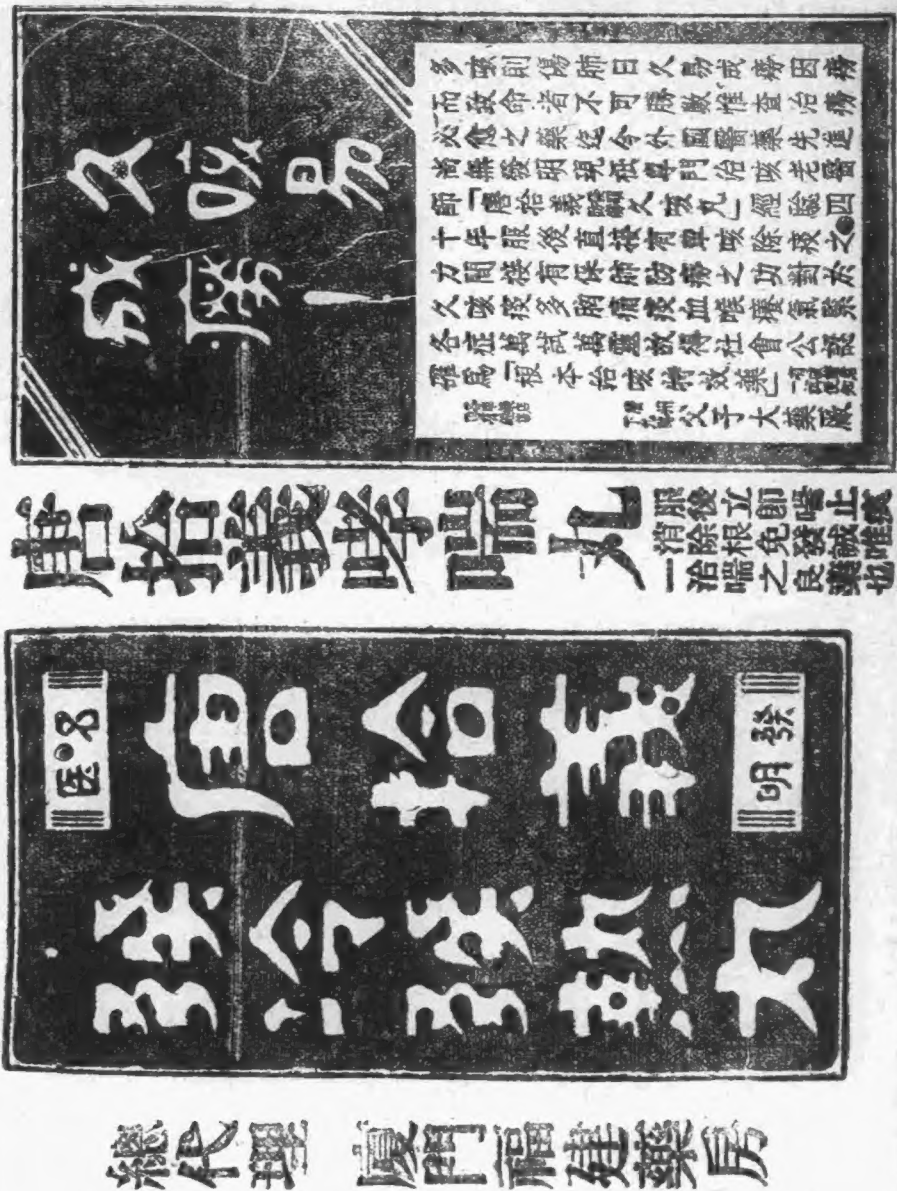 久咳易
成癆！
多咳則傷肺日久易成癆因癆
而致命者不可勝數惟查治癆
必愈之藥迄今外國醫藥先進
尚無發明現在專門治咳老醫
師「唐拾義久咳丸」經驗四
十年服後直接有單咳除痰之
力間接有保肺防癆之功對於
久咳痰多胸痛痰血喉癢氣緊
各症萬試萬靈故得社會公認
確爲「根本治咳特效藥」
父子大藥廠
唐拾義哮喘丸
服後立即喘止痰
消除根免發誠唯
一治喘之良藥也
名医
唐拾義
發明
發冷發熱丸
總代理 廈門福建藥房